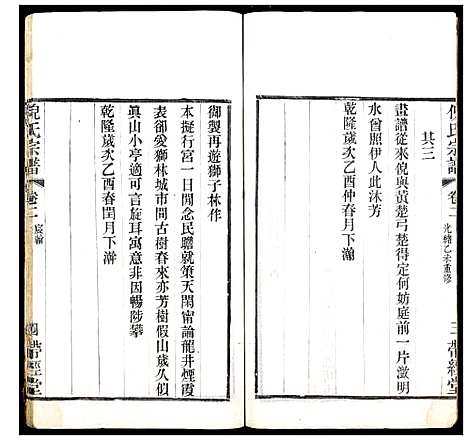 倪氏宗譜
卷二
光緒乙未重修
三
帶經堂
其三
畫譜從來倪與黃楚弓楚得定何妨庭前一片澂明
水曾照伊人此沐芳
乾隆歲次乙酉仲春月下瀚
御製再遊獅子林作
本擬行宮一日閒念民聽就策天閑甯論龍井煙霞
表卻愛獅林城市間古樹春來亦芳樹假山歲久似
眞山小亭適可言旋耳寓意非因暢陟攀
乾隆歲次乙酉春閏月下瀚
倪氏宗譜
卷二
宸翰
四
帶經堂